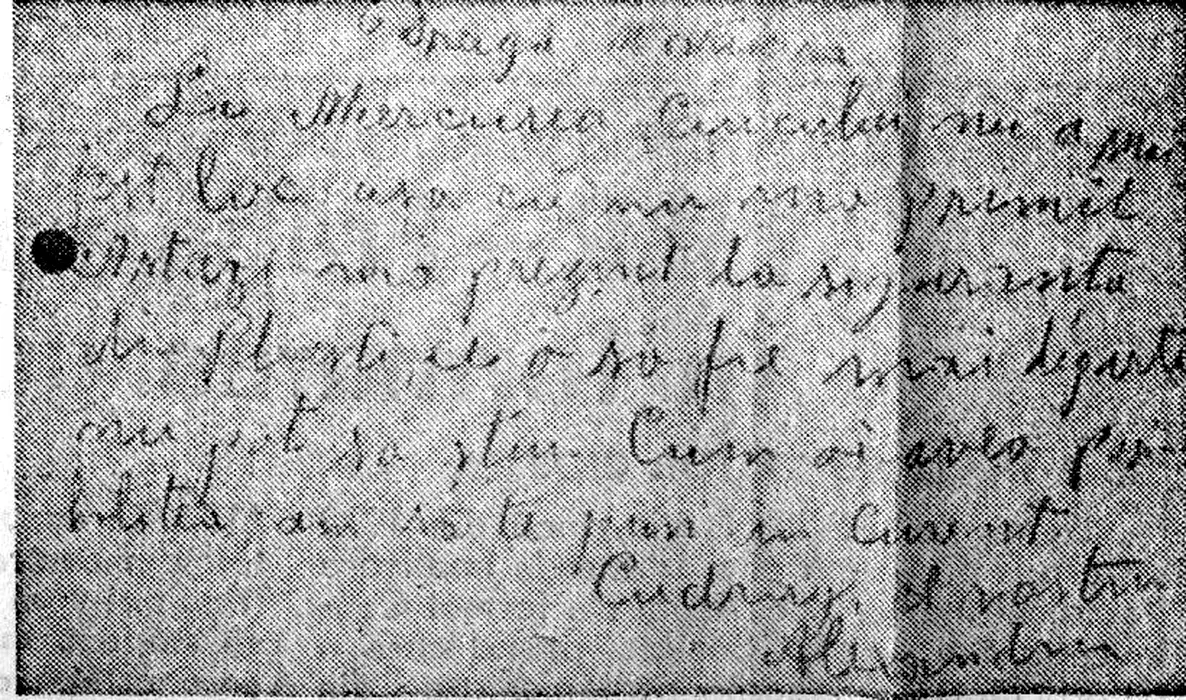 Draga Mărioara
La Miercurea Ciucului nu a mai
fost loc asa că nu ma primit
Astazi ma prezint la siguranta
din Ploesti, ce o să fie mai departe
nu pot să știu Cum oi avea posi
bilitea, am să te pun in curent.
Cu drag, al vostru
Alexandru